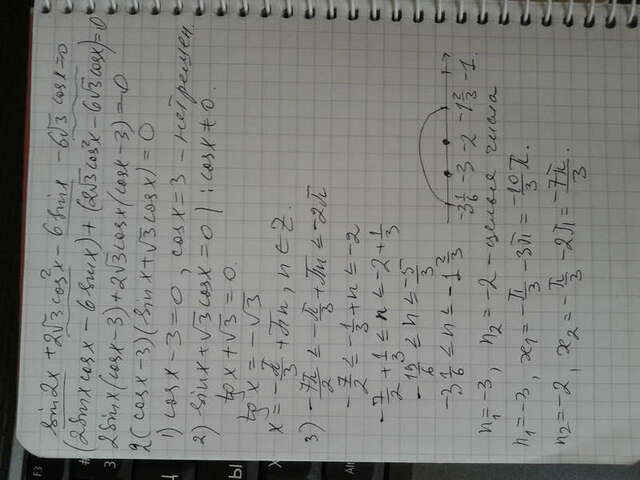 sin2x + 2√3 cos²x - 6 sinx - 6√3 cosx = 0
(2sinx cosx - 6 sinx) + (2√3 cos²x - 6√3 cosx) = 0
2sinx(cosx - 3) + 2√3 cosx(cosx - 3) = 0
2(cosx - 3)(sinx + √3 cosx) = 0
1) cosx - 3 = 0, cosx = 3 - нет решен.
2) sinx + √3 cosx = 0 | : cosx ≠ 0.
tgx + √3 = 0.
tgx = -√3
x = -π/3 + πn, n ∈ Z.
3) -7π/2 ≤ -π/3 + πn ≤ -2π
-7/2 ≤ -1/3 + n ≤ -2
-7/2 + 1/3 ≤ n ≤ -2 + 1/3
-19/6 ≤ n ≤ -5/3
-3 1/6 ≤ n ≤ -1 2/3
-3 1/6 -3 -2 -1 2/3 -1.
n₁ = -3, n₂ = -2 - целые числа
n₁ = -3, x₁ = -π/3 - 3π = -10/3 π.
n₂ = -2, x₂ = -π/3 - 2π = -7π/3.
F3
#
3
Ц
Ы
X
Alt